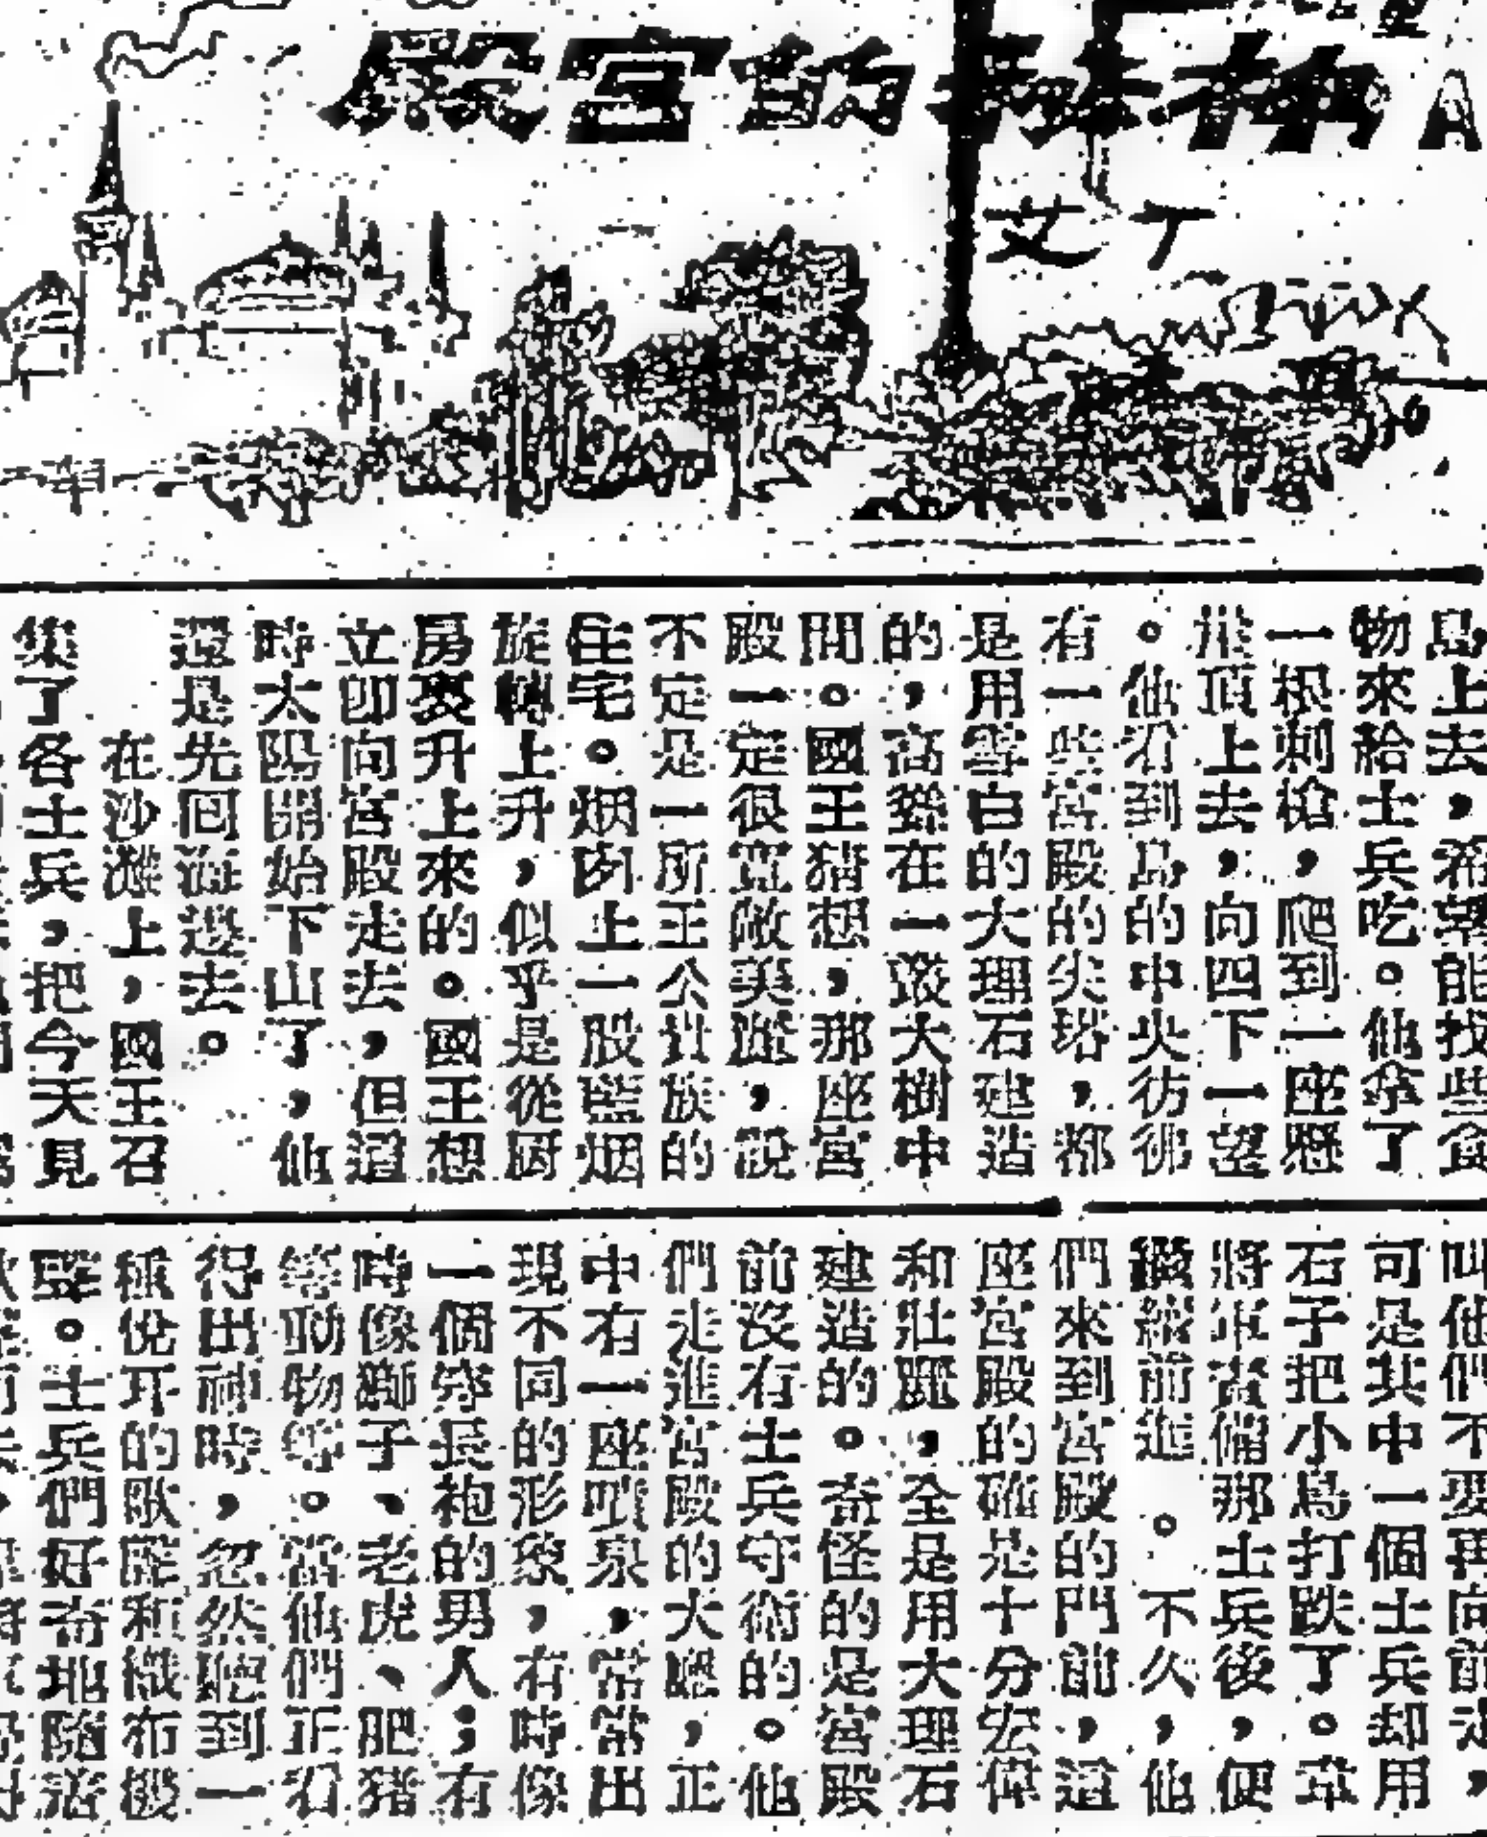 的宮殿
艾丁
島上去，希望能找些食
物來給士兵吃。他拿了
一根刺槍，爬到一座懸
崖頂上去，向四下一望
。他看到島的中央彷彿
有一些宮殿的尖塔，都
是用雪白的大理石建造
的，高聳在一叢大樹中
間。國王猜想，那座宮
殿一定很寬敞美麗，說
不定是一所王公貴族的
住宅。烟囱上一股藍烟
旋轉上升，似乎是從厨
房裏升上來的。國王想
立即向宮殿走去，但這
時太陽開始下山了，他
還是先囘海邊去。
在沙灘上，國王召
集了各士兵，把今天見
叫他們不要再向前走，
可是其中一個士兵却用
石子把小鳥打跌了。韋
將軍責備那士兵後，便
繼續前進。不久，他
們來到宮殿的門前，這
座宮殿的確是十分宏偉
和壯麗，全是用大理石
建造的。奇怪的是宮殿
前沒有士兵守衛的。他
們走進宮殿的大廳，正
中有一座噴泉，常常出
現不同的形象，有時像
一個穿長袍的男人；有
時像獅子、老虎、肥猪
等動物等。當他們正看
得出神時，忽然聽到一
種悅耳的歌聲和織布機
聲。士兵們好奇地隨着